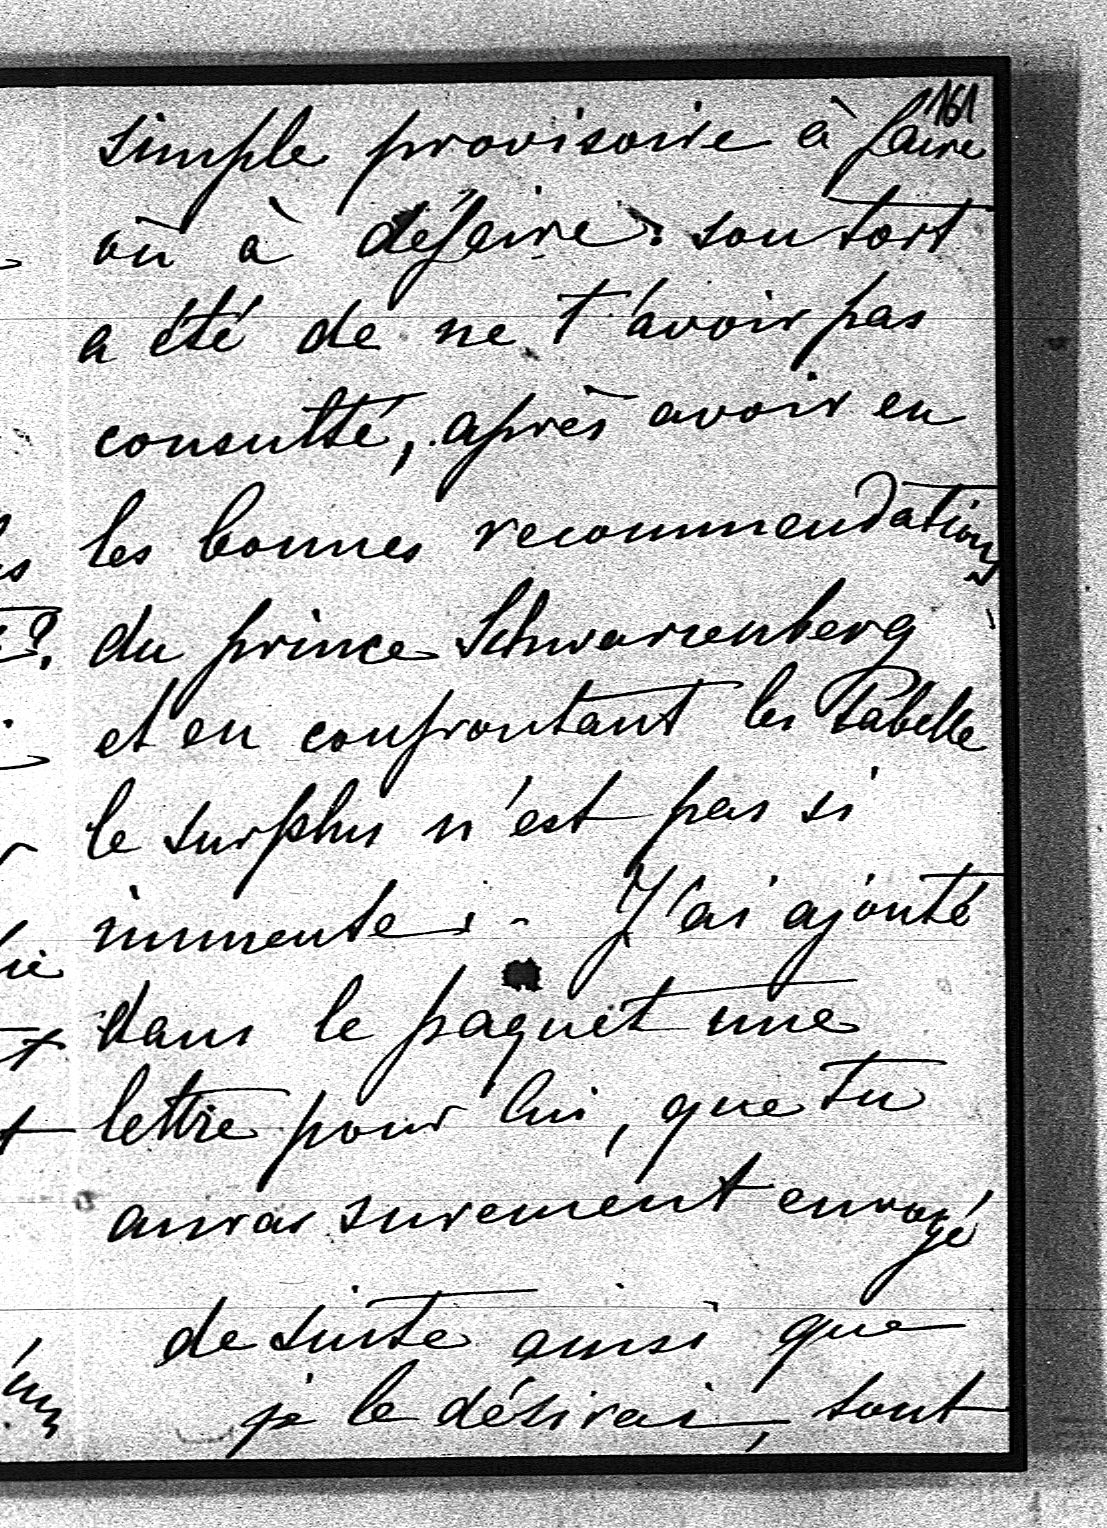 161
simple provisoire à faire
où à défaire: son tort
a été de ne t'avoir pas
consulté, après avoir eu
les bonnes recommendations
du prince Schwarzenberg
et en confrontant les Tabelle
le surplus n'est pas si
immense. - J'ai ajouté
dans le paquet une
lettre pour lui, que tu
auras surement envoyé
de suite ainsi que
je le désirai, tout